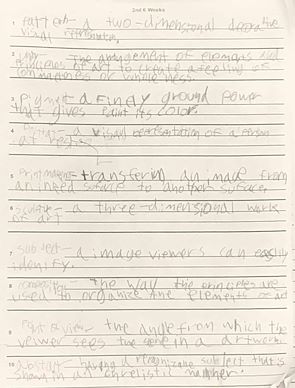 2nd 6 Weeks
1 a two-dimensional decorative
visual
2 Unity - The arrangement of elements and
principles of art to create a feeling of
completeness or wholeness.
3 Pigment - a finely ground power
that gives paint its color.
4 a visual representation of a person
at rest
5 Printmaking - transfering an image from
an inked surface to another surface.
6 sculpture - a three-dimensional work
of art
7 subject - a image viewers can easily
idenify.
8 composition - the way the principles are
used to organize the elements of art
9 Point of view - the angle from which the
veiwer sees the scene in a artwork.
10 abstract - having a recognizable subject that is
shown in a manner.